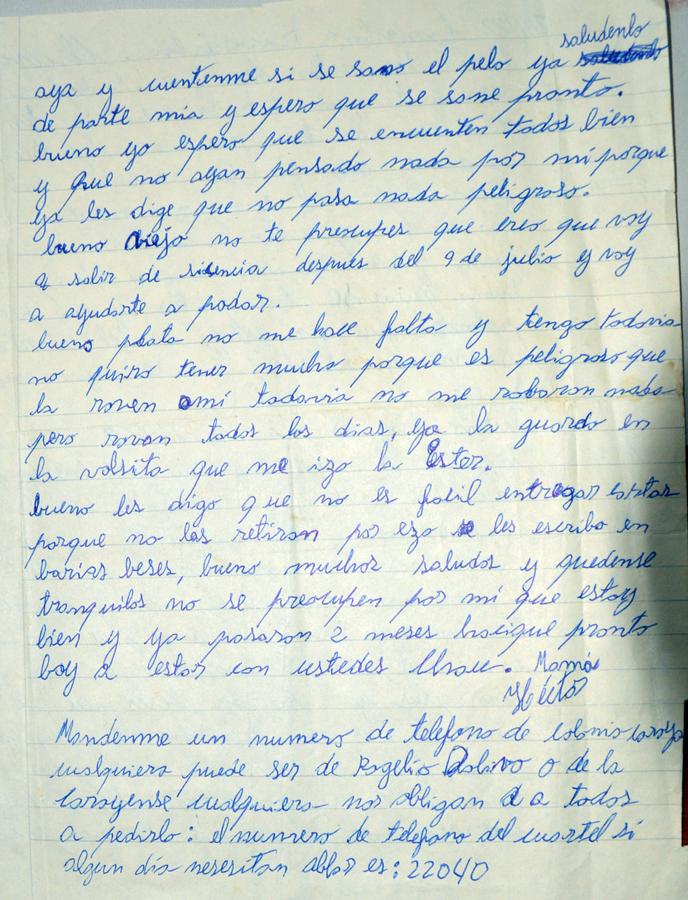 saludenlo
aya y cuentenme si se sano el pelo ya
de parte mia y espero que se sane pronto.
bueno yo espero que se encuenten todos bien
y que no ayan pensado nada por mi porque
ya les dige que no pasa nada peligroso.
bueno viejo no te preocupes que creo que voy
a salir de sicencia despues del 9 de julio y voy
a ayudarte a podar.
bueno plata no me hace falta y tengo todavia
no quiro tener mucha porque es peligroso que
la roven ami todavia no me robaron nada
pero rovan todos los dias, ya la guardo en
la volsita que me izo la Ester.
bueno les digo que no es facil entregar
porque no las retiran por ezo se les escribo en
barias beses, bueno muchos saludos y quedense
tranquilos no se preocupen por mi que estoy
bien y ya pasaron 2 meses hacique pronto
boy a estar con ustedes Chau. Mamá
Héctor
Mandenme un numero de telefono de colonia
cualquiera puede ser de Rogelio o de la
cualquiera nos obligan a a todos
a pedirlo: el numero de telefono del cuartel si
algun día nesesitan ablar es: 22040